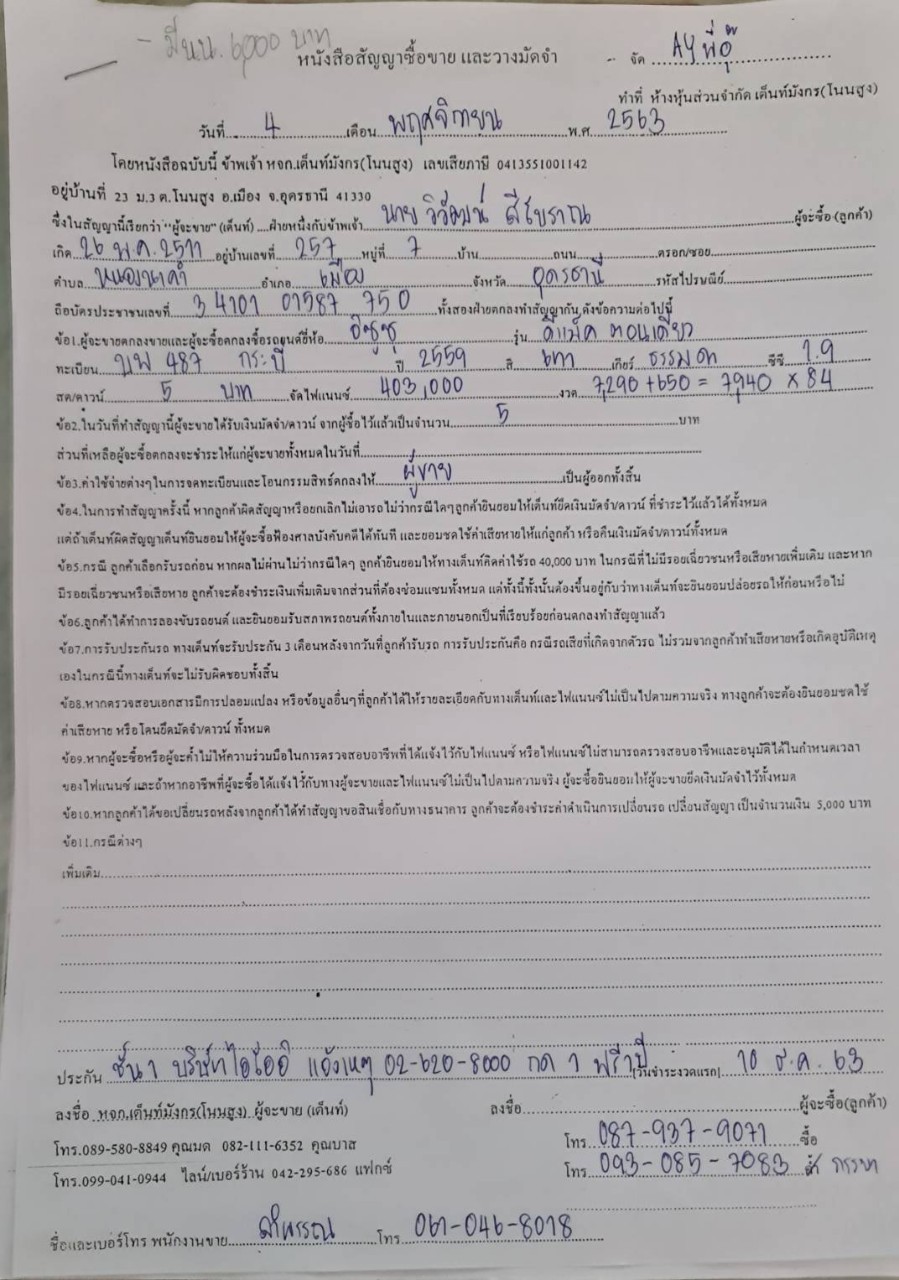 - มีนน. 6,000 บาท
หนังสือสัญญาซื้อขาย และวางมัดจำ
- จัด AY พี่อุ๊
ทำที่ ห้างหุ้นส่วนจำกัด เต็นท์มังกร(โนนสูง)
วันที่ 4 เดือน พฤศจิกายน พ.ศ. 2563
โดยหนังสือฉบับนี้ ข้าพเจ้า หจก.เต็นท์มังกร(โนนสูง) เลขเสียภาษี 0413551001142
อยู่บ้านที่ 23 ม.3 ต.โนนสูง อ.เมือง จ.อุดรธานี 41330
ซึ่งในสัญญานี้เรียกว่า "ผู้จะขาย" (เต็นท์) ....ฝ่ายหนึ่งกับข้าพเจ้า นาย วิวัฒน์ สีโบราณ ผู้จะซื้อ (ลูกค้า)
เกิด 26 พ.ค. 2511 อยู่บ้านเลขที่ 257 หมู่ที่ 7 บ้าน ถนน ตรอก/ซอย
ตำบล หนองนาคำ อำเภอ เมือง จังหวัด อุดรธานี รหัสไปรษณีย์
ถือบัตรประชาชนเลขที่ 3 4101 01587 75 0 ทั้งสองฝ่ายตกลงทำสัญญากัน ดังข้อความต่อไปนี้
ข้อ1.ผู้จะขายตกลงขายและผู้จะซื้อตกลงซื้อรถยนต์ยี่ห้อ อีซูซุ รุ่น ดีแม็ค ตอนเดียว
ทะเบียน บพ 487 กระบี่ ปี 2559 สี เทา เกียร์ ธรรมดา ซีซี 1.9
สด/ดาวน์ 5 บาท จัดไฟแนนซ์ 403,000 งวด 7,290 + 650 = 7,940 x 84
ข้อ2.ในวันที่ทำสัญญานี้ผู้จะขายได้รับเงินมัดจำ/ดาวน์ จากผู้ซื้อไว้แล้วเป็นจำนวน 5 บาท
ส่วนที่เหลือผู้จะซื้อตกลงจะชำระให้แก่ผู้จะขายทั้งหมดในวันที่
ข้อ3.ค่าใช้จ่ายต่างๆในการจดทะเบียนและโอนกรรมสิทธ์ตกลงให้ ผู้ขาย เป็นผู้ออกทั้งสิ้น
ข้อ4.ในการทำสัญญาครั้งนี้ หากลูกค้าผิดสัญญาหรือยกเลิกไม่เอารถ ไม่ว่ากรณีใดๆลูกค้ายินยอมให้เต็นท์ยึดเงินมัดจำ/ดาวน์ ที่ชำระไว้แล้วได้ทั้งหมด
แต่ถ้าเต็นท์ผิดสัญญาเต็นท์ยินยอมให้ผู้จะซื้อฟ้องศาลบังคับคดีได้ทันที และยอมชดใช้ค่าเสียหายให้แก่ลูกค้า หรือคืนเงินมัดจำ/ดาวน์ทั้งหมด
ข้อ5.กรณี ลูกค้าเลือกรับรถก่อน หากผลไม่ผ่านไม่ว่ากรณีใดๆ ลูกค้ายินยอมให้ทางเต็นท์คิดค่าใช้รถ 40,000 บาท ในกรณีที่ไม่มีรอยเฉี่ยวชนหรือเสียหายเพิ่มเติม และหาก
มีรอยเฉี่ยวชนหรือเสียหาย ลูกค้าจะต้องชำระเงินเพิ่มเติมจากส่วนที่ต้องซ่อมแซมทั้งหมด แต่ทั้งนี้ทั้งนั้นต้องขึ้นอยู่กับว่าทางเต็นท์จะยินยอมปล่อยรถให้ก่อนหรือไม่
ข้อ6.ลูกค้าได้ทำการลองขับรถยนต์ และยินยอมรับสภาพรถยนต์ทั้งภายในและภายนอกเป็นที่เรียบร้อยก่อนตกลงทำสัญญาแล้ว
ข้อ7.การรับประกันรถ ทางเต็นท์จะรับประกัน 3 เดือนหลังจากวันที่ลูกค้ารับรถ การรับประกันคือ กรณีรถเสียที่เกิดจากตัวรถ ไม่รวมจากลูกค้าทำเสียหายหรือเกิดอุบัติเหตุ
เองในกรณีนี้ทางเต็นท์จะไม่รับผิดชอบทั้งสิ้น
ข้อ8.หากตรวจสอบเอกสารมีการปลอมแปลง หรือข้อมูลอื่นๆที่ลูกค้าได้ให้รายละเอียดกับทางเต็นท์และไฟแนนซ์ไม่เป็นไปตามความจริง ทางลูกค้าจะต้องยินยอมชดใช้
ค่าเสียหาย หรือโดนยึดมัดจำ/ดาวน์ ทั้งหมด
ข้อ9.หากผู้จะซื้อหรือผู้จะค้ำไม่ให้ความร่วมมือในการตรวจสอบอาชีพที่ได้แจ้งไว้กับไฟแนนซ์ หรือไฟแนนซ์ไม่สามารถตรวจสอบอาชีพและอนุมัติได้ในกำหนดเวลา
ของไฟแนนซ์ และถ้าหากอาชีพที่ผู้จะซื้อได้แจ้งไว้กับทางผู้จะขายและไฟแนนซ์ไม่เป็นไปตามความจริง ผู้จะซื้อยินยอมให้ผู้จะขายยึดเงินมัดจำไว้ทั้งหมด
ข้อ10.หากลูกค้าได้ขอเปลี่ยนรถหลังจากลูกค้าได้ทำสัญญาขอสินเชื่อกับทางธนาคาร ลูกค้าจะต้องชำระค่าดำเนินการเปลี่ยนรถ เปลี่ยนสัญญา เป็นจำนวนเงิน 5,000 บาท
ข้อ11.กรณีต่างๆ
เพิ่มเติม
ประกัน ชั้น1 บริษัทไอโออิ แจ้งเหตุ 02-620-8000 กด 1 ฟรี1ปี (วันชำระงวดแรก) 10 ธ.ค. 63
ลงชื่อ หจก.เต็นท์มังกร(โนนสูง) ผู้จะขาย (เต็นท์) ลงชื่อ ผู้จะซื้อ(ลูกค้า)
โทร.089-580-8849 คุณมด 082-111-6352 คุณบาส โทร 087-937-9071 ซื้อ
โทร.099-041-0944 ไลน์/เบอร์ร้าน 042-295-686 แฟกซ์ โทร 093-085-7083 ภรรยา
ชื่อและเบอร์โทร พนักงานขาย โทร 061-046-8018